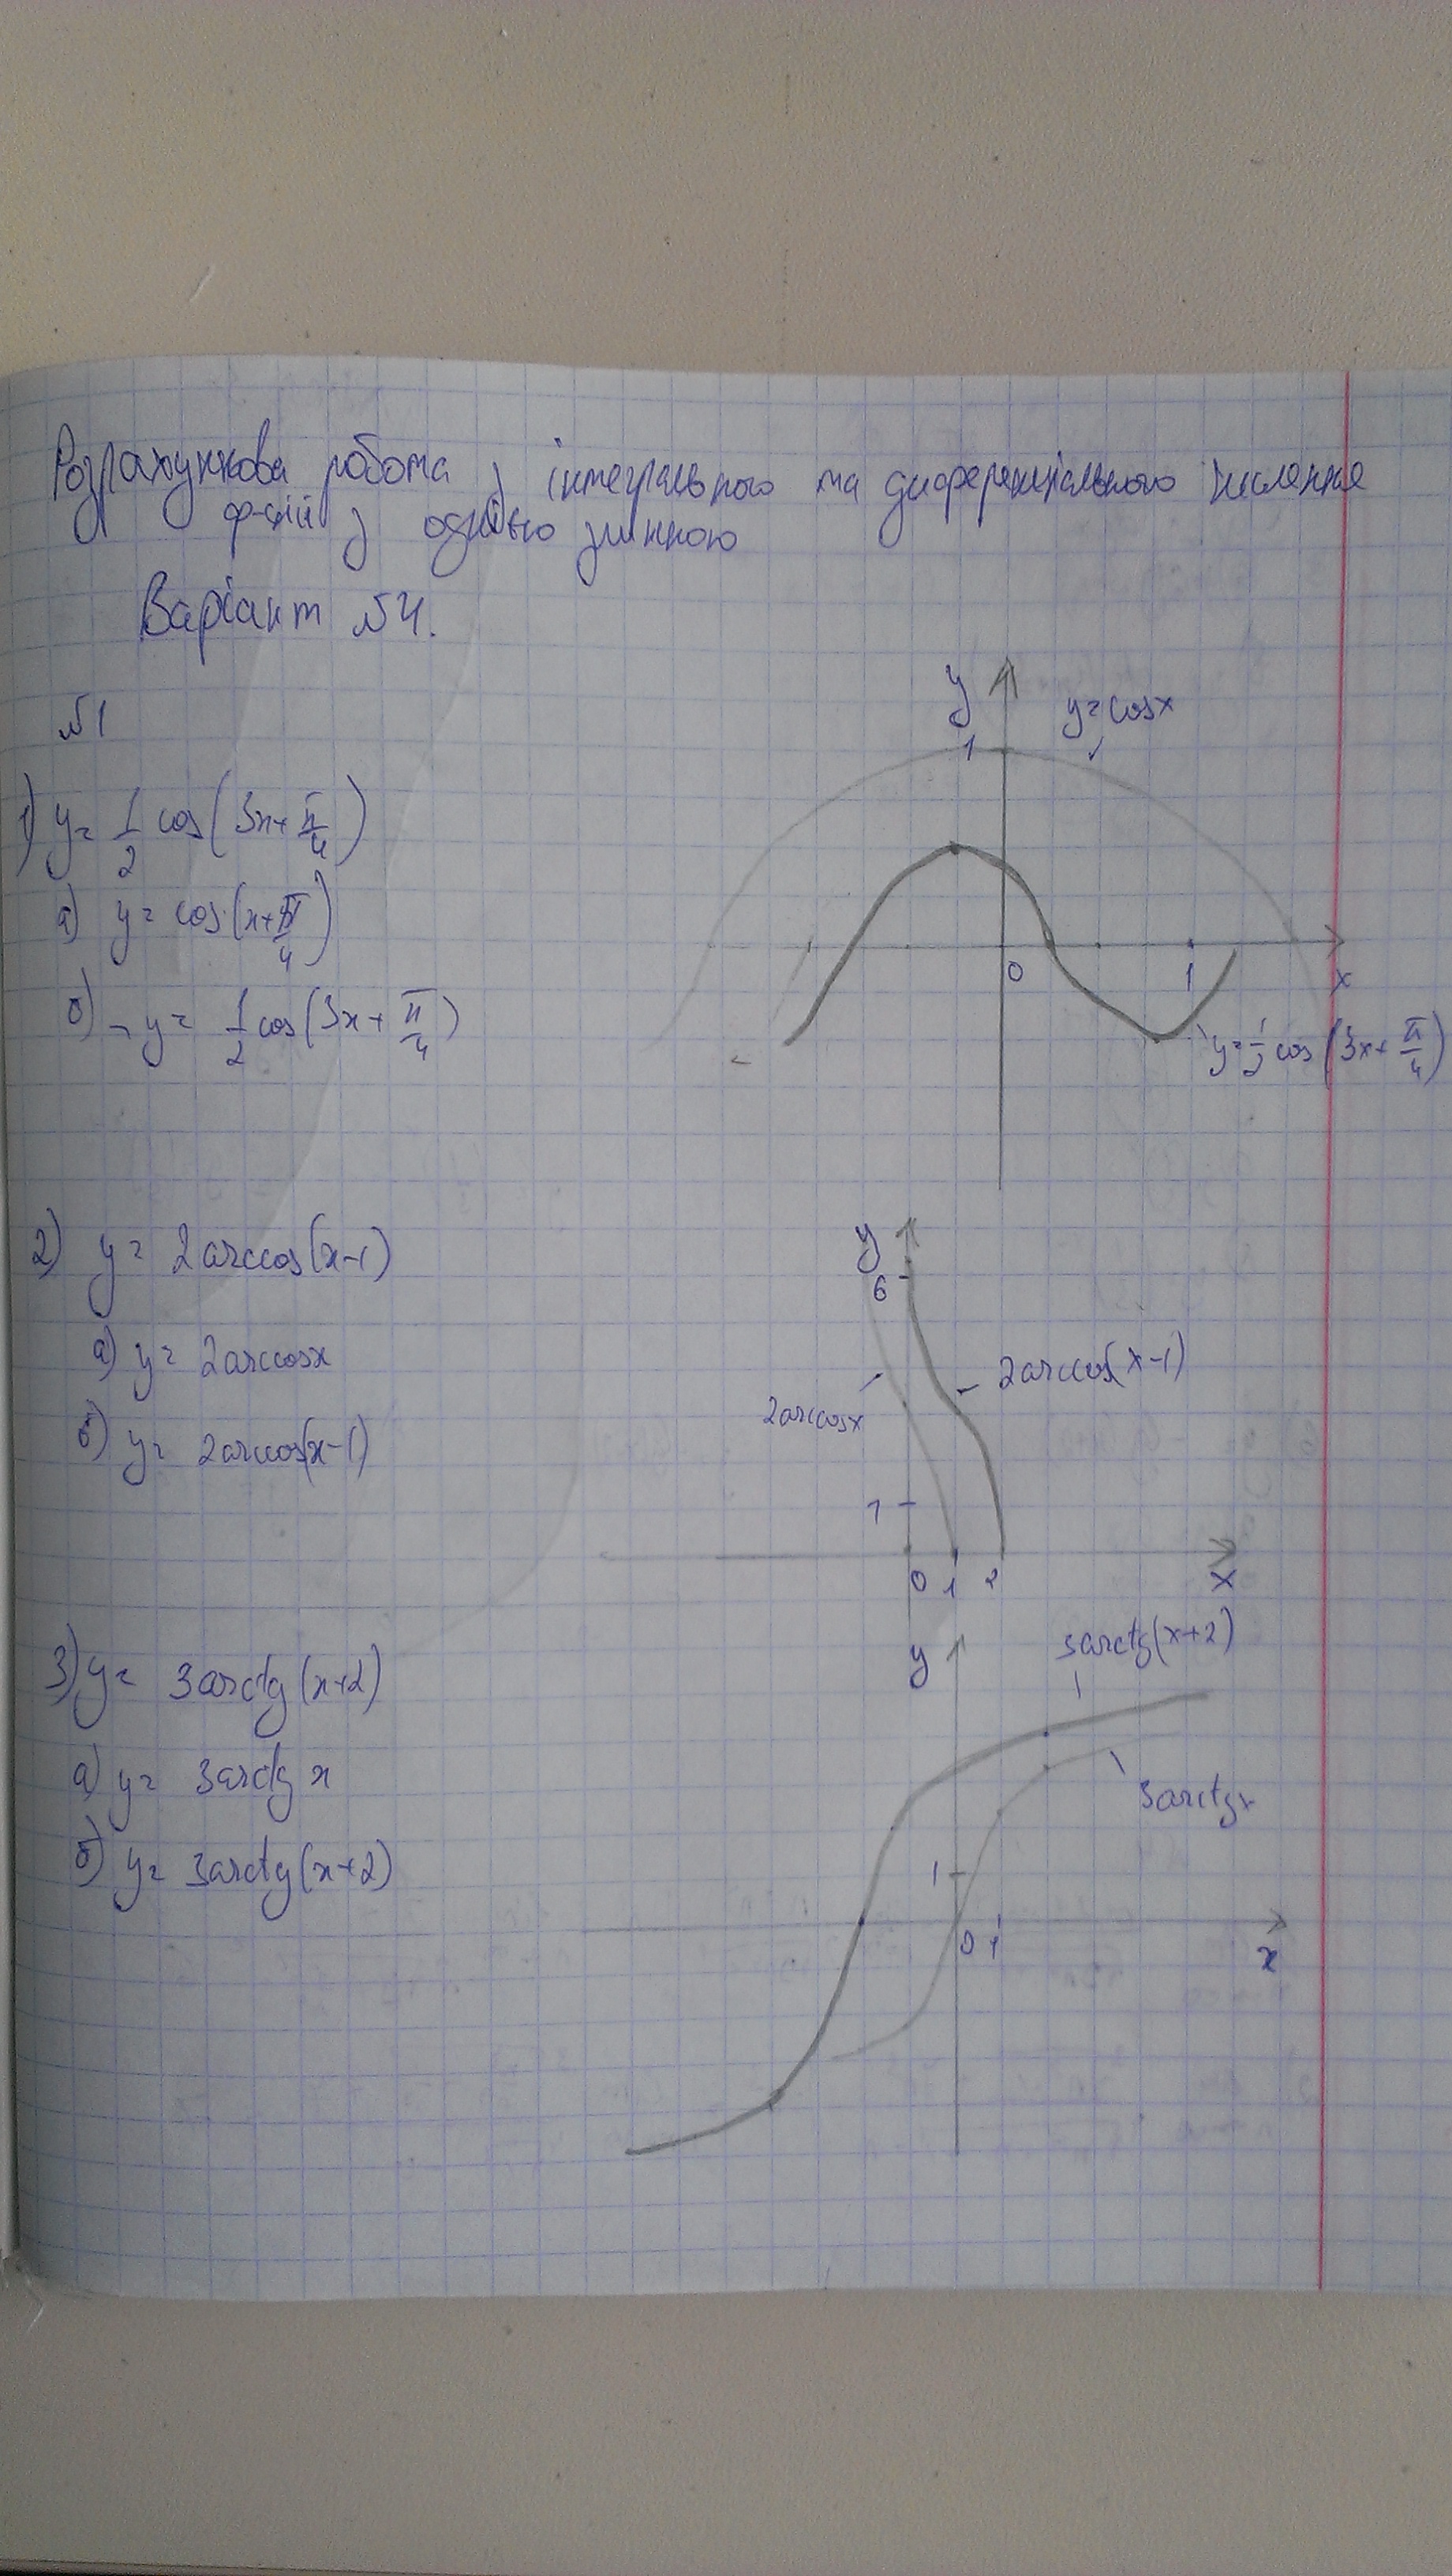 Розрахункова робота з інтегрального та диференціального числення
ф-цій з однією змінною
Варіант №4.
№1
1) y = 1/2 cos(3x + π/4)
а) y = cos(x + π/4)
б) y = 1/2 cos(3x + π/4)
y
y = cosx
1
0
1
x
y = 1/2 cos(3x + π/4)
2) y = 2arccos(x-1)
а) y = 2arccosx
б) y = 2arccos(x-1)
y
6
2arccos(x-1)
2arccosx
1
0 1 2
x
3) y = 3arctg(x+2)
а) y = 3arctg x
б) y = 3arctg(x+2)
y
3arctg(x+2)
3arctgx
1
0 1
x